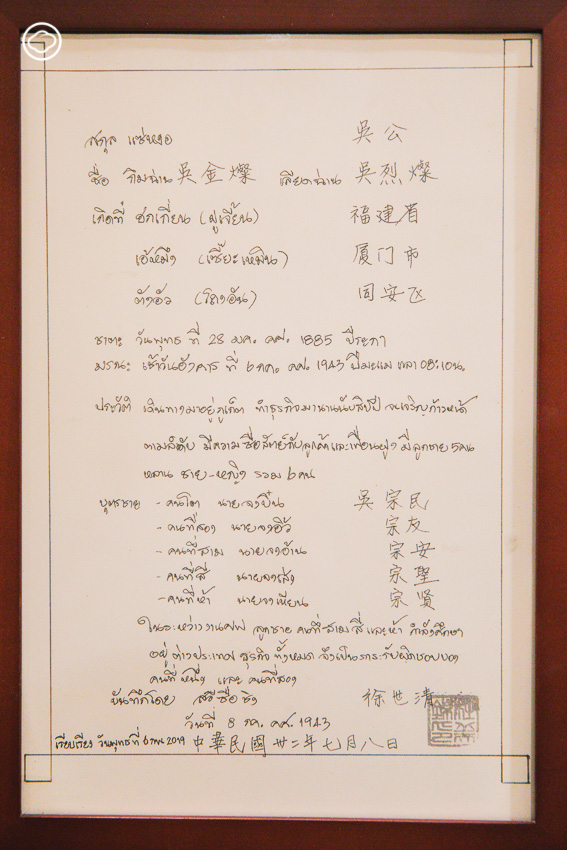 สกุล แซ่หงอ 吳公
ชื่อ กิมฉ่าน 吳金燦 เลียดฉ่าน 吳烈燦
เกิดที่ ฮกเกี้ยน (ฝูเจี้ยน) 福建省
เอ้หมึง (เซี๊ยะเหมิน) 厦门市
ตังอัว (โถงอัน) 同安区
ชาตะ วันพุธ ที่ 28 ม.ค. ค.ศ. 1885 ปีระกา
มรณะ เช้าวันอังคาร ที่ 6 ก.ค. ค.ศ. 1943 ปีมะแม เวลา 08:10น.
ประวัติ เดินทางมาอยู่ภูเก็ต ทำธุรกิจมานานนับสิบปี จนเจริญก้าวหน้า
ตามลำดับ มีความซื่อสัตย์กับลูกค้าและเพื่อนฝูง มีลูกชาย 5 คน
หลาน ชาย-หญิง รวม 6 คน
บุตรชาย - คนโต นายจงบิ๋น 吳宗民
- คนที่สอง นายจงอิ้ว 宗友
- คนที่สาม นายจงอ้าน 宗安
- คนที่สี่ นายจงเส้ง 宗聖
- คนที่ห้า นายจงเหียน 宗贤
ในระหว่างงานศพ ลูกชาย คนที่สาม สี่ และห้า กำลังศึกษา
อยู่ต่างประเทศ ธุรกิจทั้งหมด จึงเป็นภาระรับผิดชอบของ
คนที่หนึ่ง และ คนที่สอง
บันทึกโดย สวีซื่อชิง 徐世清
วันที่ 8 ก.ค. ค.ศ. 1943
เรียบเรียง วันพุธที่ 6 2019 中華民國卅二年七月八日